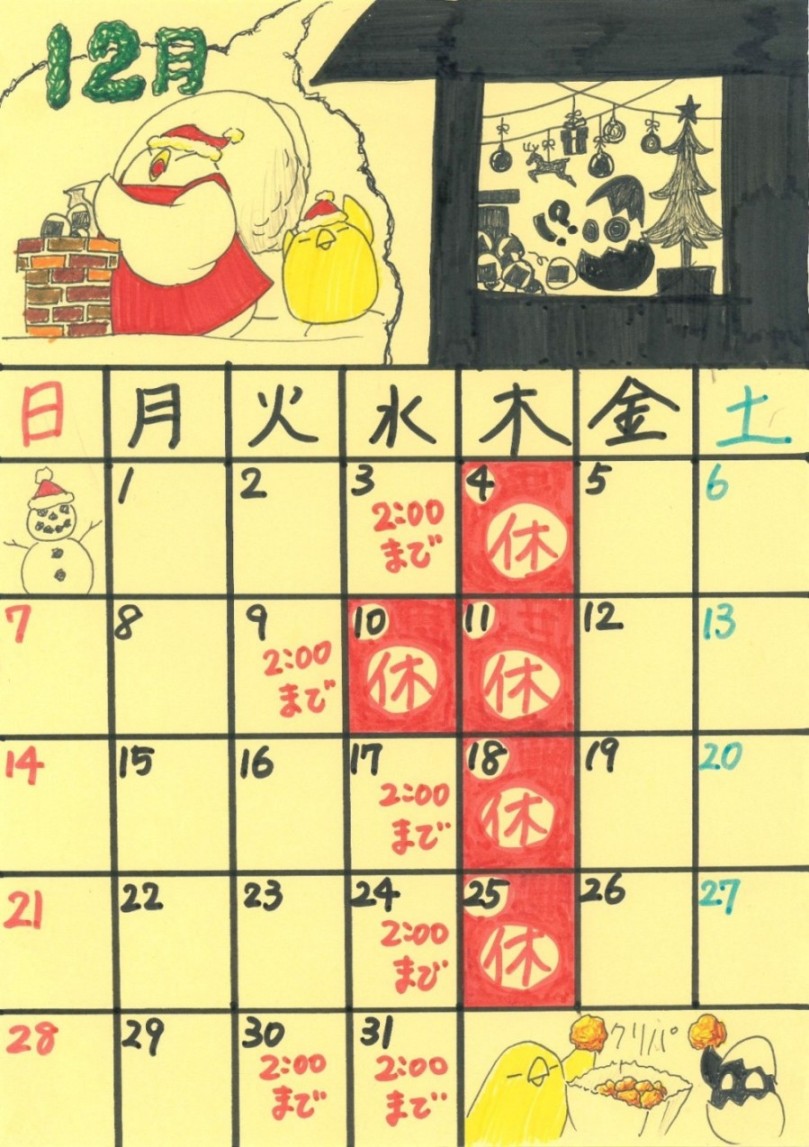 12月
日 月 火 水 木 金 土
1 2 3 4 5 6
2:00
まで
休
7 8 9 10 11 12 13
2:00
まで
休
休
14 15 16 17 18 19 20
2:00
まで
休
21 22 23 24 25 26 27
2:00
まで
休
28 29 30 31
2:00
まで
2:00
まで
クリパ